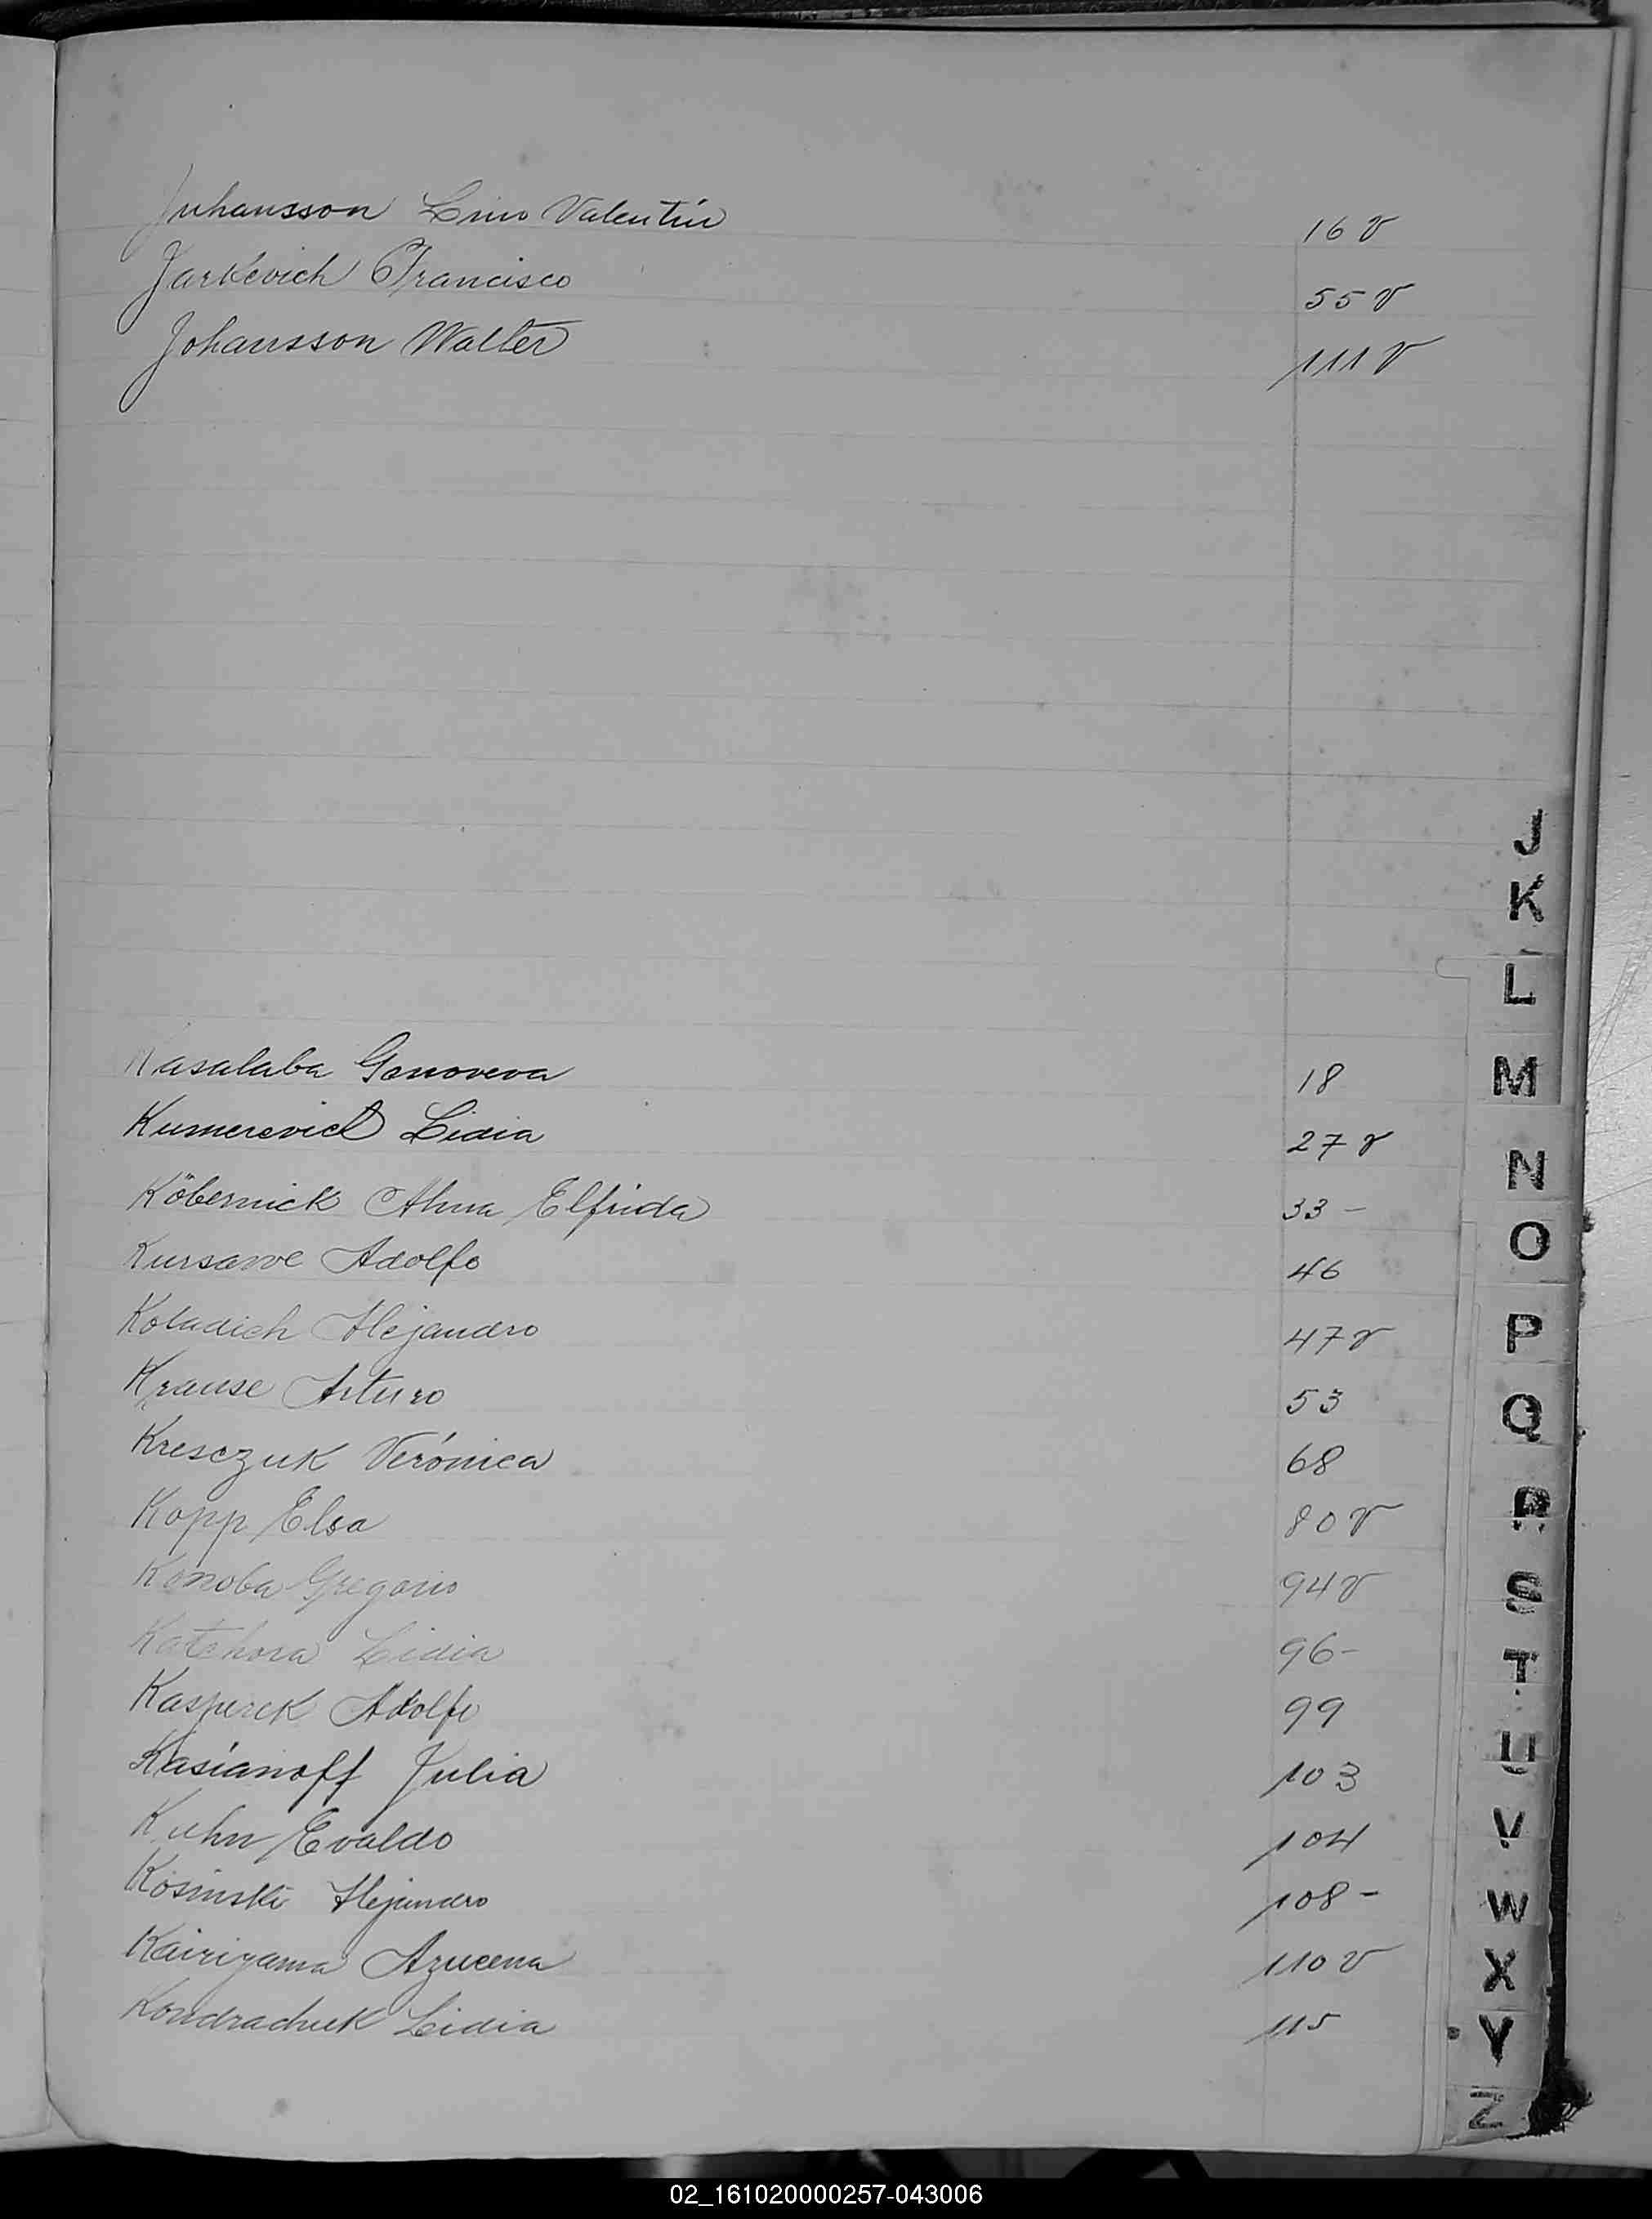 Juhansson Lino Valentín 16 v
Jarkevich Francisco 55 v
Johansson Walter 111 v
J
K
L
Kasalaba Genoveva 18
M
Kumerevich Lidia 27 v
N
Köbernick Alma Elfrida 33 -
O
Kursawe Adolfo 46
Koladich Alejandro 47 v
P
Krause Arturo 53
Q
Kresczuk Verónica 68
Kopp Elsa 80 v
R
Konoba Gregorio 94 v
S
Katchora Lidia 96 -
T
Kasperek Adolfo 99
U
Kasianoff Julia 103
V
Kuhn Evaldo 104
Kosinski Alejandro 108 -
W
Kairiyama Azucena 110 v
X
Kondrachuk Lidia 115
Y
Z
02_161020000257-043006